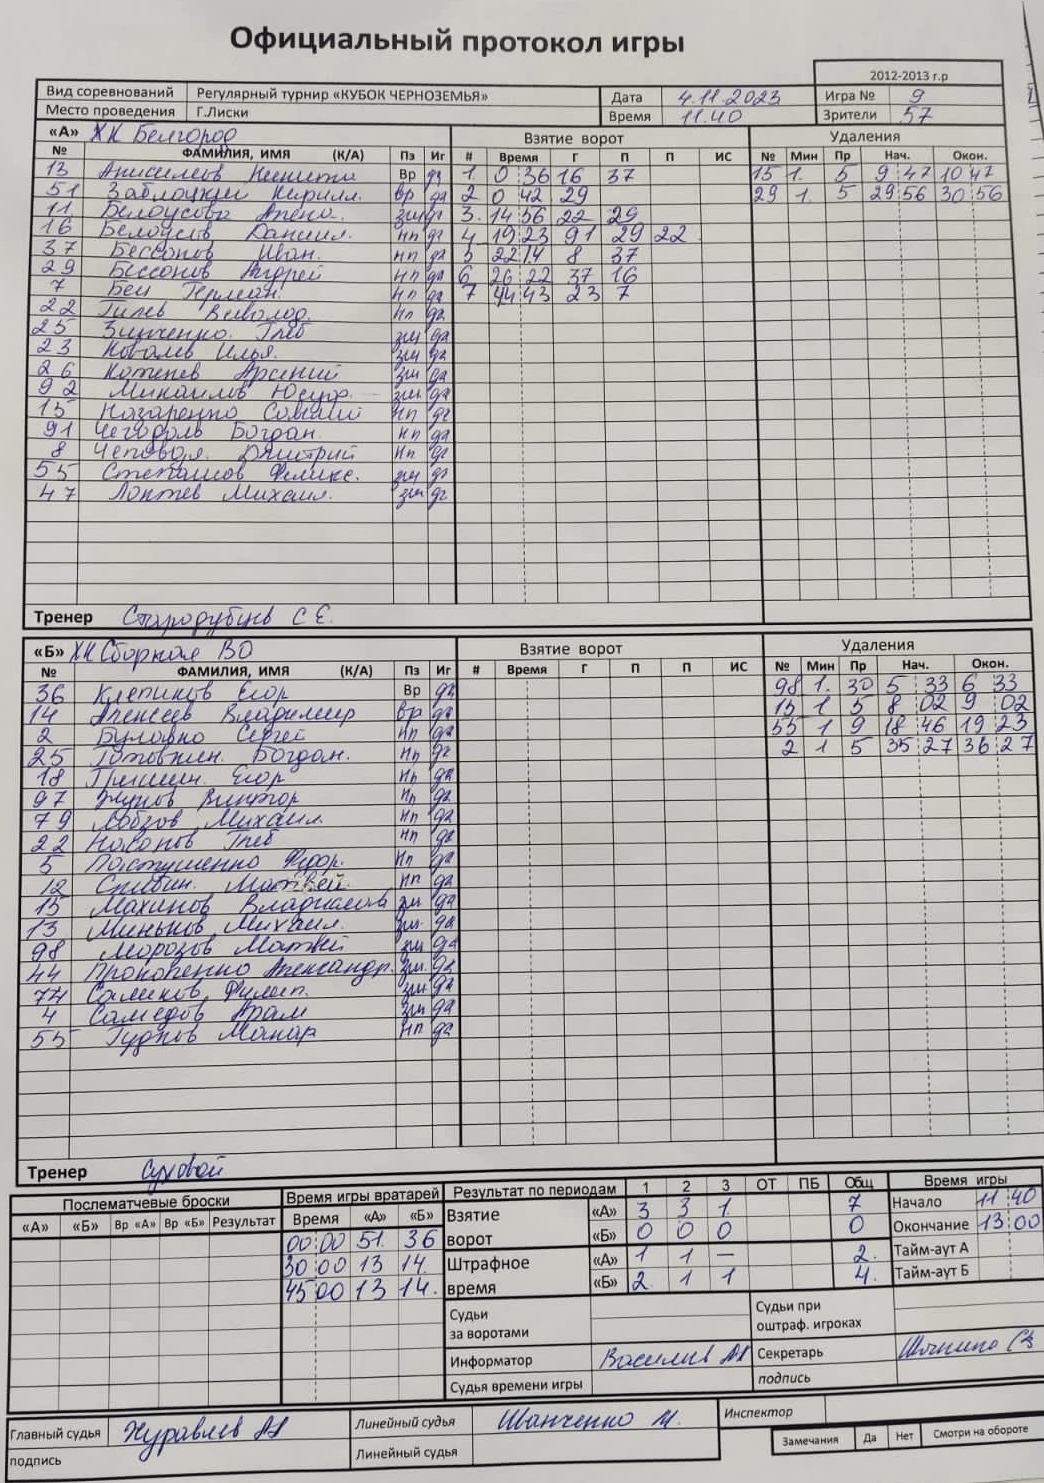 Официальный протокол игры
2012-2013 г.р
Вид соревнований Регулярный турнир «КУБОК ЧЕРНОЗЕМЬЯ» Дата 4.11.2023 Игра № 9
Место проведения Г.Лиски Время 11.40 Зрители 57
«А» ХК Белгород Взятие ворот Удаления
№ ФАМИЛИЯ, ИМЯ (К/А) Пз Иг # Время Г П П ИС № Мин Пр Нач. Окон.
13 Анисимов Никита Вр да 1 0 36 16 37 15 1. 5 9 47 10 47
51 Заблоцкий Кирилл. вр да 2 0 42 29 29 1. 5 29 56 30 56
11 Белоусова Алена. зщ да 3. 14 56 22 29
16 Белоусов Даниил. нп да 4 19 23 91 29 22
37 Бессонов Иван. нп да 5 22 14 8 37
29 Бессонов Андрей нп да 6 26 22 37 16
7 Бец Герман. нп да 7 44 43 23 7
22 Гилев Всеволод. нп да
25 Зинченко. Глеб зщ да
23 Ковалев Илья. зщ да
26 Котенев Арсений зщ да
92 Михайлов зщ да
15 Назаренко нп да
91 Богдан. нп да
8 Чеповал. Дмитрий нп да
55 Степанов Феликс. зщ да
47 Локтев Михаил. зщ да
Тренер Стародубцев С Е.
«Б» ХК Сборная ВО Взятие ворот Удаления
№ ФАМИЛИЯ, ИМЯ (К/А) Пз Иг # Время Г П П ИС № Мин Пр Нач. Окон.
36 Клепиков Егор Вр да 98 1. 30 5 33 6 33
14 Алексеев Владимир вр да 15 1 5 8 02 9 02
2 Сергей нп да 55 1 9 18 46 19 23
25 Готовкин. Богдан. нп да 2 1 5 35 27 36 27
18 Гришин. Егор нп да
97 Жуков Виктор нп да
79 Лобзов Михаил нп да
22 Глеб нп да
5 Пастушенко Фёдор. нп да
12 Матвей. нп да
15 Махинов Владислав зщ да
13 Миньков Михаил. зщ. да
98 Морозов Матвей зщ да
44 Прокопенко Александр. зщ. да
77 Саликов Филип. зщ да
4 Самедов Арам зщ да
55 Гудков Макар нп да
Тренер Суховой
Послематчевые броски Время игры вратарей Результат по периодам 1 2 3 ОТ ПБ Общ Время игры
«А» «Б» Вр «А» Вр «Б» Результат Время «А» «Б» Взятие ворот «А» 3 3 1. 7 Начало 11 40
00 00 51. 36 «Б» 0 0 0 0 Окончание 13 00
30 00 13 14 Штрафное время «А» 1 1 — 2. Тайм-аут А
45 00 13 14. «Б» 2. 1 1 4. Тайм-аут Б
Судьи за воротами Судьи при оштраф. игроках
Информатор Василив Секретарь
Судья времени игры подпись
Главный судья Журавлев Линейный судья Шанченко М. Инспектор
подпись Линейный судья Замечания Да Нет Смотри на обороте